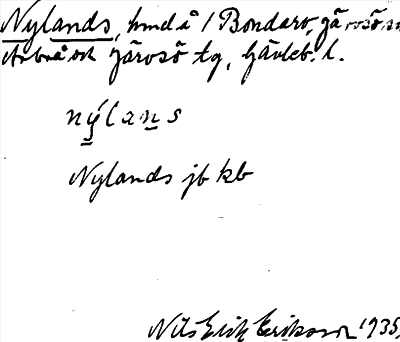 Nylands, hmd å 1 Bondarv, Järvsö sn
Arbrå och Järvsö tg, Gävleb. l.
nýlans
Nylands jb kb
Nils Erik Eriksson 1935